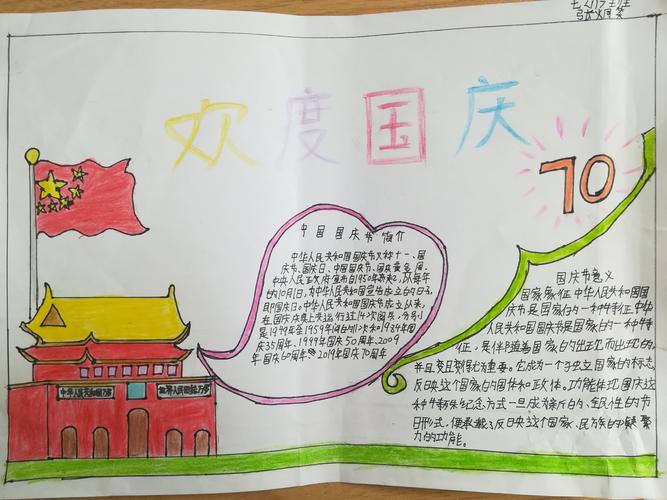 欢度国庆
70
中国国庆节简介
中华人民共和国国庆节又称十一、国
庆节、国庆日、中国国庆节、国庆黄金周。
中央人民政府宣布自1950年起,以每年
的10月1日,为中华人民共和国宣告成立的日子,
即国庆日。中华人民共和国国庆节成立以来,
在国庆庆典上共进行过14次阅兵,分别
是1949年至1959年间的11次和1984年国
庆35周年、1999年国庆50周年、2009
年国庆60周年 2019年国庆70周年
国庆节意义
国家象征 中华人民共和国国
庆节是国家的一种特征 中华
人民共和国国庆节是国家的一种特
征,是伴随着国家的出现而出现的,
并且变得尤为重要。它成为一个独立国家的标志,
反映这个国家的国体和政体。功能体现 国庆这
种特殊纪念方式一旦成为新的、全民性的节
日形式,便承载了反映这个国家、民族的凝聚
力的功能。
中华人民共和国万岁
世界人民团结万岁